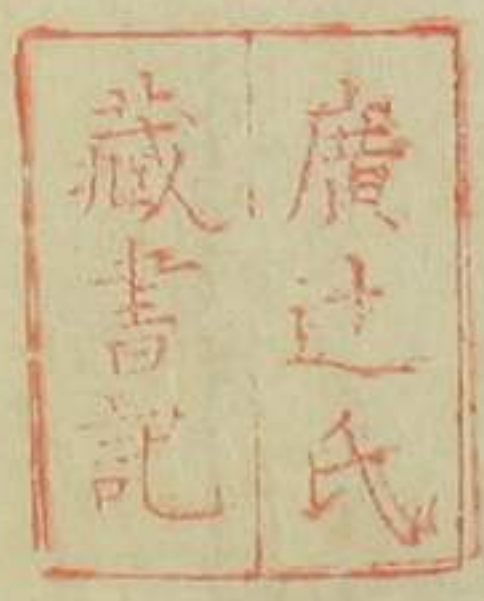 廣辻氏
藏書記